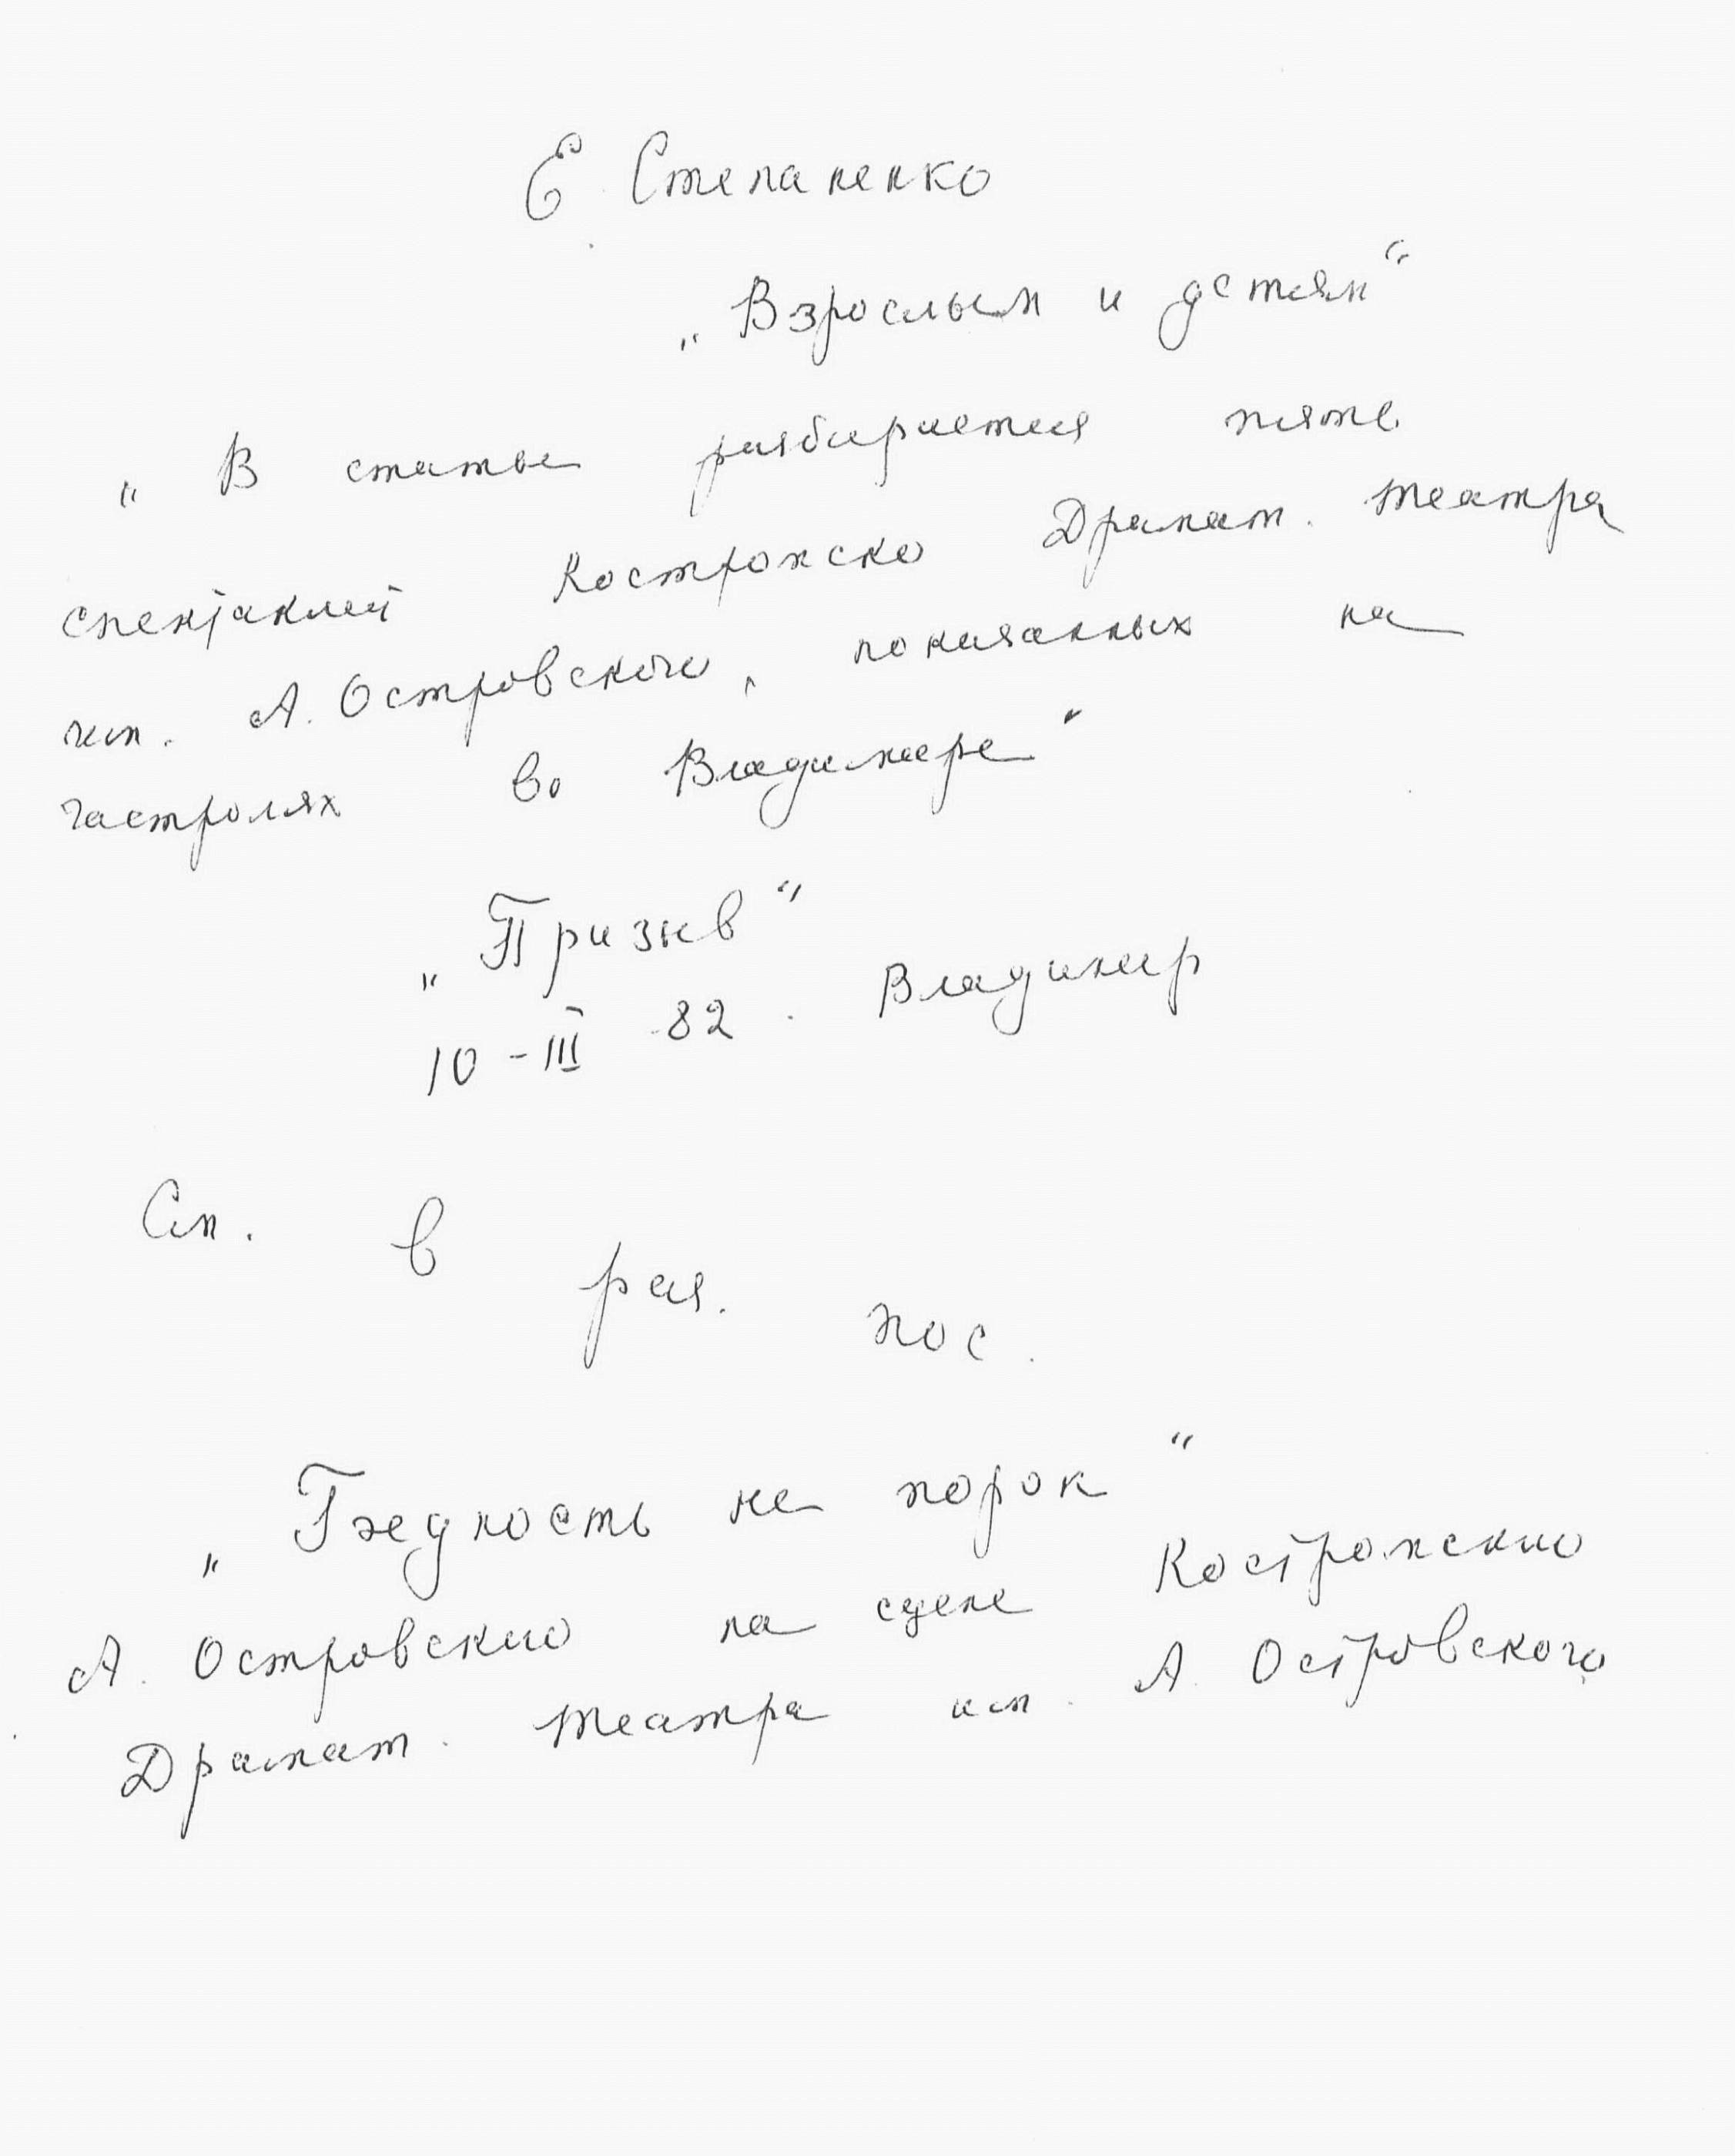 Е. Степаненко
„Взрослым и детям“
„В статье разбирается пять
спектаклей Костромско Драмат. театра
им. А. Островского, показанных на
гастролях во Владимире“
„Призыв“
10-III 82. Владимир
См. в раз. пос.
„Бедность не порок“
А. Островского на сцене Костромского
Драмат. театра им. А. Островского